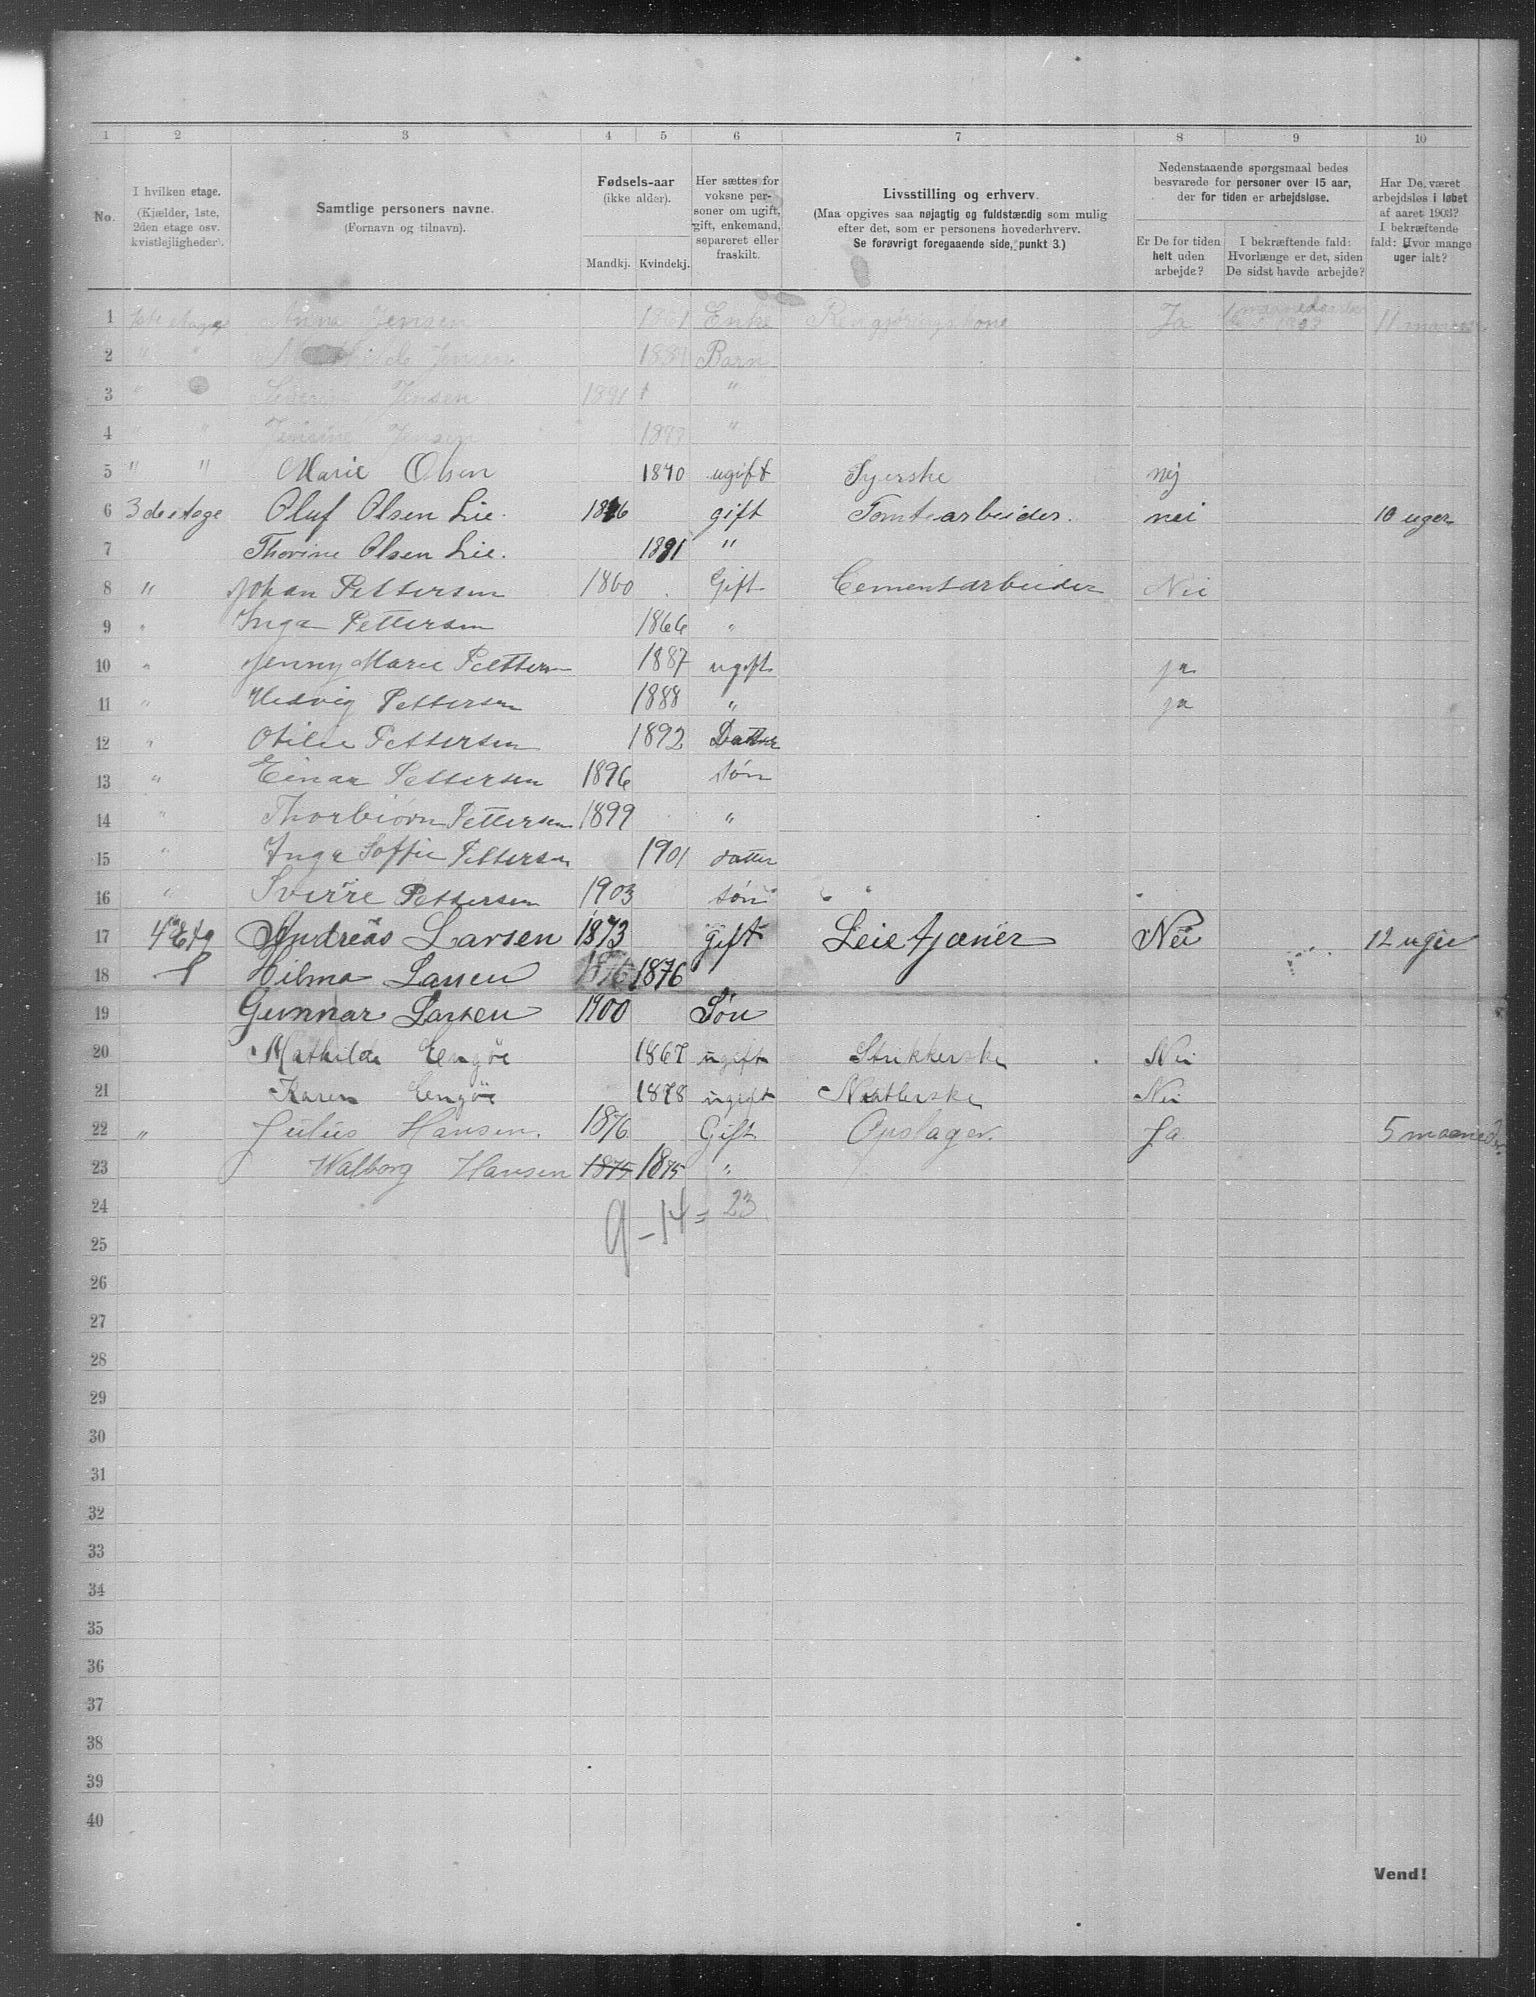 1 2 3 4 5 6 7 8 9 10
No.
I hvilken etage.
(Kjælder, 1ste,
2den etage osv.
kvistlejligheder).
Samtlige personers navne.
(Fornavn og tilnavn).
Fødsels-aar
(ikke alder).
Mandkj. Kvindekj.
Her sættes for
voksne per-
soner om ugift,
gift, enkemand,
separeret eller
fraskilt.
Livsstilling og erhverv.
(Maa opgives saa nøjagtig og fuldstændig som mulig
efter det, som er personens hovederhverv.
Se forøvrigt foregaaende side, punkt 3.)
Nedenstaaende spørgsmaal bedes
besvarede for personer over 15 aar,
der for tiden er arbejdsløse.
Er De for tiden
helt uden
arbejde?
I bekræftende fald:
Hvorlænge er det, siden
De sidst havde arbejde?
Har De været
arbejdsløs i løbet
af aaret 1903?
I bekræftende
fald: Hvor mange
uger ialt?
1 1ste etage Anna Jensen Enke Rengjøringskone Ja 11
2 " " Jensen Barn
3 " Jensen 1891 "
4 " " Jensen "
5 " " Marie Olsen 1840 ugift Syerske nej
6 3de etage Oluf Olsen Lie. gift Tomtearbeider. nei 10 uger
7 Thorine Olsen Lie. "
8 " Johan Pettersen 1860 Gift Cementarbeider Nei
9 " Inga Pettersen 1866 "
10 " Jenny Marie Pettersen 1887 ugift ja
11 " Hedvig Pettersen 1888 " ja
12 " Otilie Pettersen 1892 Datter
13 " Einar Pettersen 1896 søn
14 " Thorbiørn Pettersen 1899 "
15 " Inga Soffie Pettersen 1901 datter
16 " Sverre Pettersen 1903 søn
17 4de Etg Andreas Larsen 1873 gift Leietjæner Nei 12 uger
18 Hilma Larsen 1876 1876
19 Gunnar Larsen 1900 Søn
20 Mathilde Engøe 1867 ugift Strikkerske Nei
21 Karen Engøe 1878 ugift Naatlerske Nei
22 " Julius Hansen. 1876 Gift Opslager. Ja 5 maaneder
23 Walborg Hansen 1875 1875 "
24 9-14 = 23
25
26
27
28
29
30
31
32
33
34
35
36
37
38
39
40
Vend!